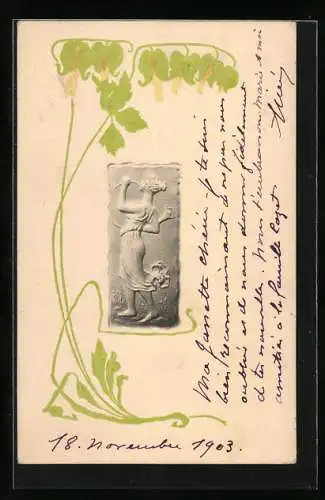 Ma Jannette chérie - Je te suis
bien reconnaissant de ne pas nous
oublier et de nous donner fidèlement
de tes nouvelles. Nous t'embrassons Marie & moi
amitiés à la famille
18. November 1903.